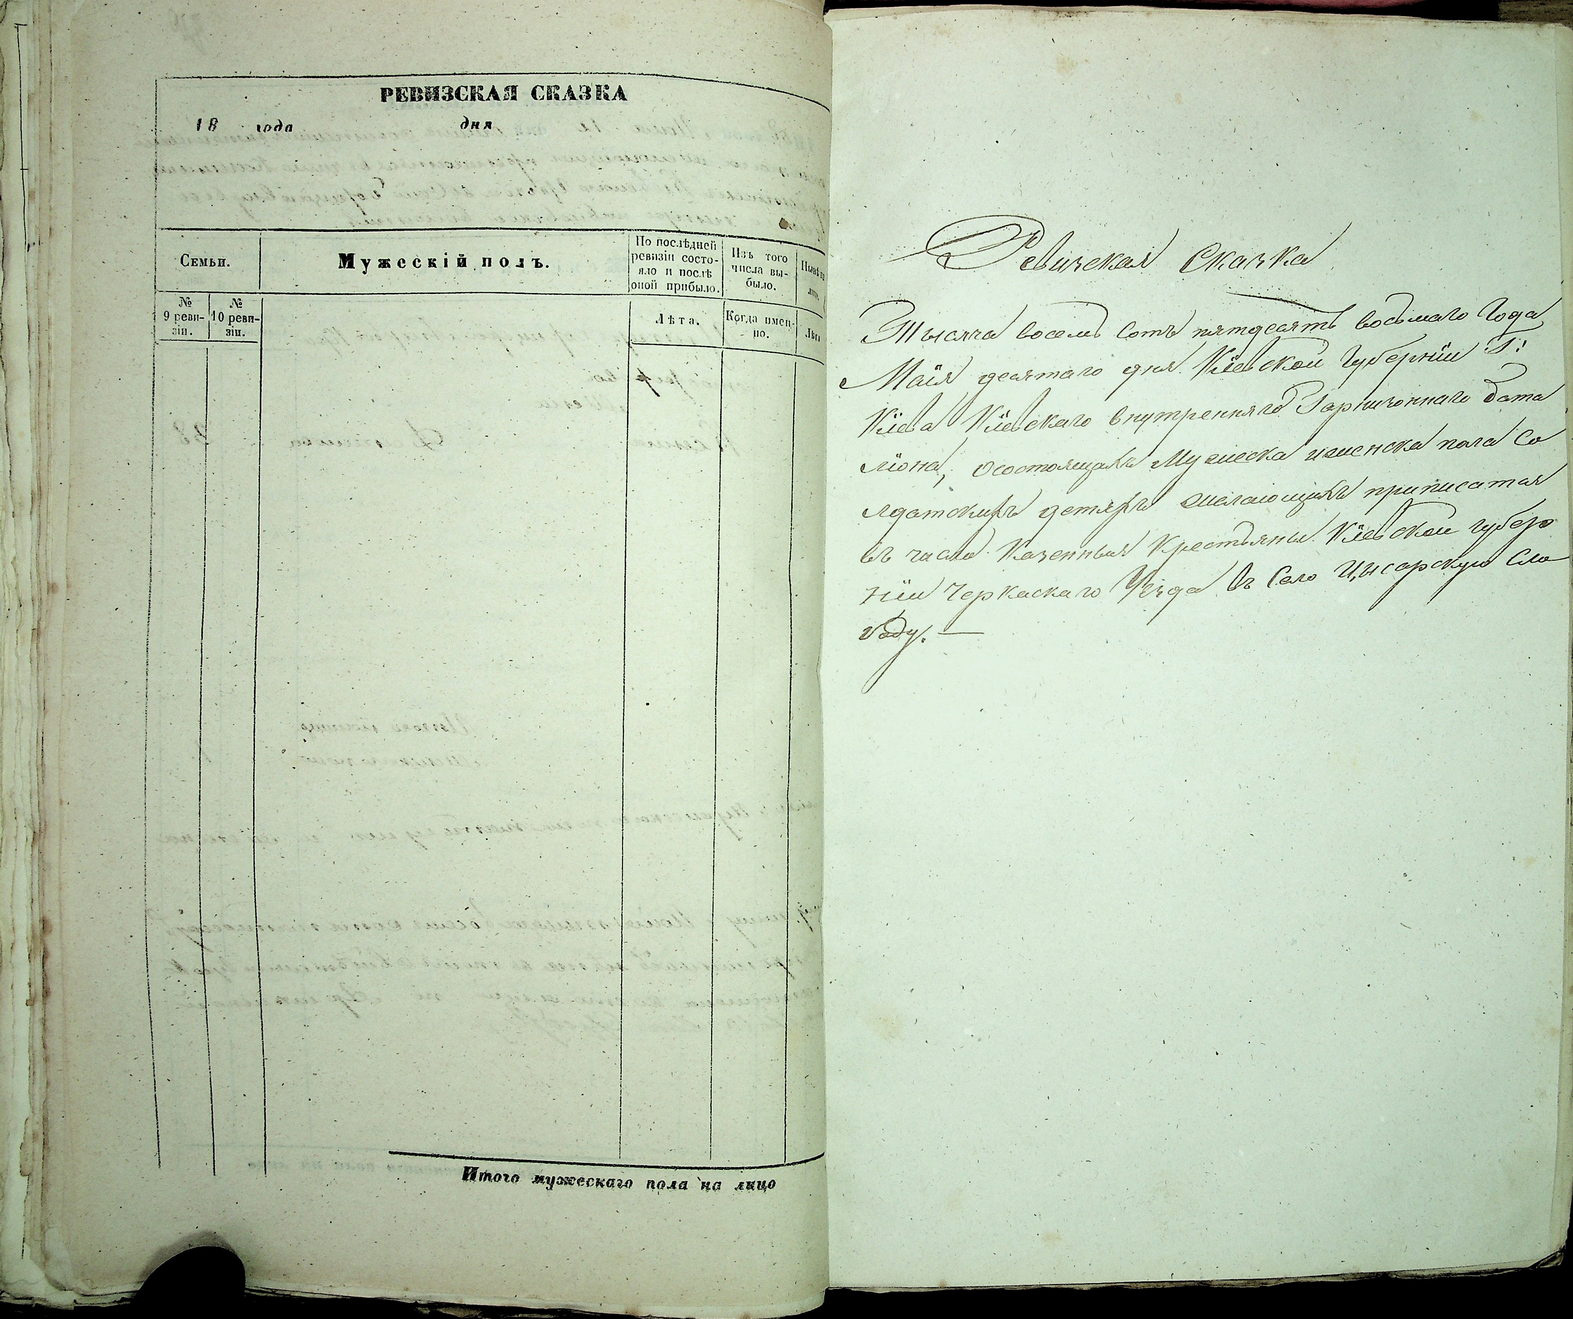 РЕВИЗСКАЯ СКАЗКА
18 года дня
Семьи.
Мужескій полъ.
По послѣдней
ревизіи состо-
яло и послѣ
оной прибыло.
Изъ того
числа вы-
было.
№
9 реви-
зіи.
№
10 реви-
зіи.
Лѣта.
Когда имен-
но.
Итого мужескаго пола на лицо
Ревизская Сказка
Тысяча восемь сотъ пятдесятъ восьмаго Года
Маія десятаго дня Кіевской Губерніи Г:
Кіева Кіевскаго внутренняго Гарнизоннаго бата
ліона, осостоящихъ Мужеска иженска пола Со
лдатскихъ детяхъ желающихъ приписатся
въ число Казенныя Крестьяны Кіевской губер
ніи Черкаскаго Уезда въ Село Цысарскую Сло
боду. —